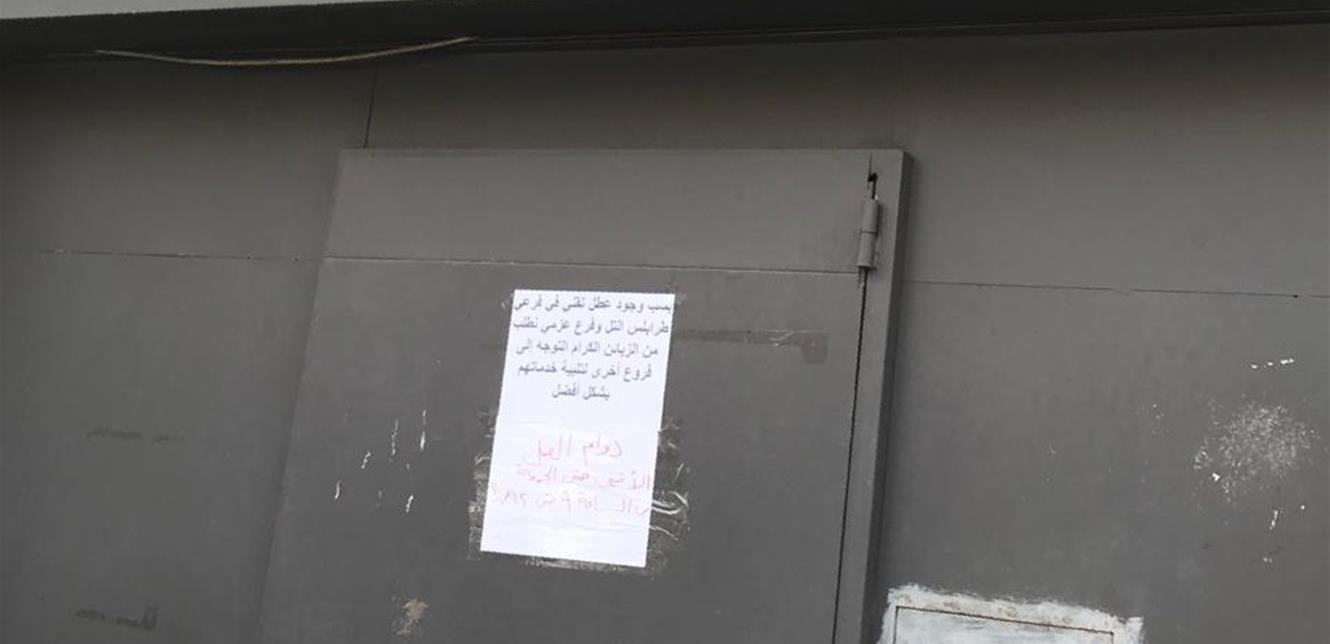 بسبب وجود عطل تقني في فرعي
طرابلس التل وفرع عزمي نطلب
من الزبائن الكرام التوجه إلى
فروع أخرى لتلبية خدماتهم
بشكل أفضل
دوام العمل
الأثنين حتى الجمعة
من الساعة ٩ حتى ١٢